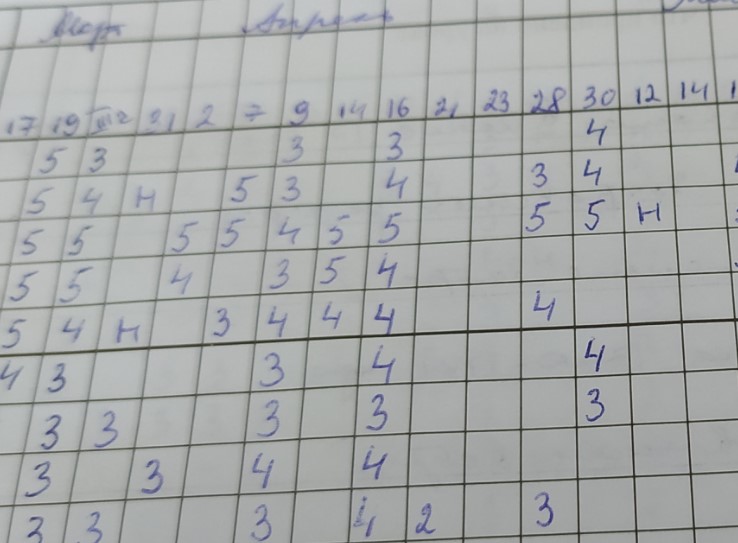 Март Апрель
17 19 21 2 7 9 14 16 21 23 28 30 12 14
5 3 3 3 4
5 4 н 5 3 4 3 4
5 5 5 5 4 5 5 5 5 н
5 5 4 3 5 4
5 4 н 3 4 4 4 4
4 3 3 4 4
3 3 3 3 3
3 3 4 4
3 3 3 4 2 3